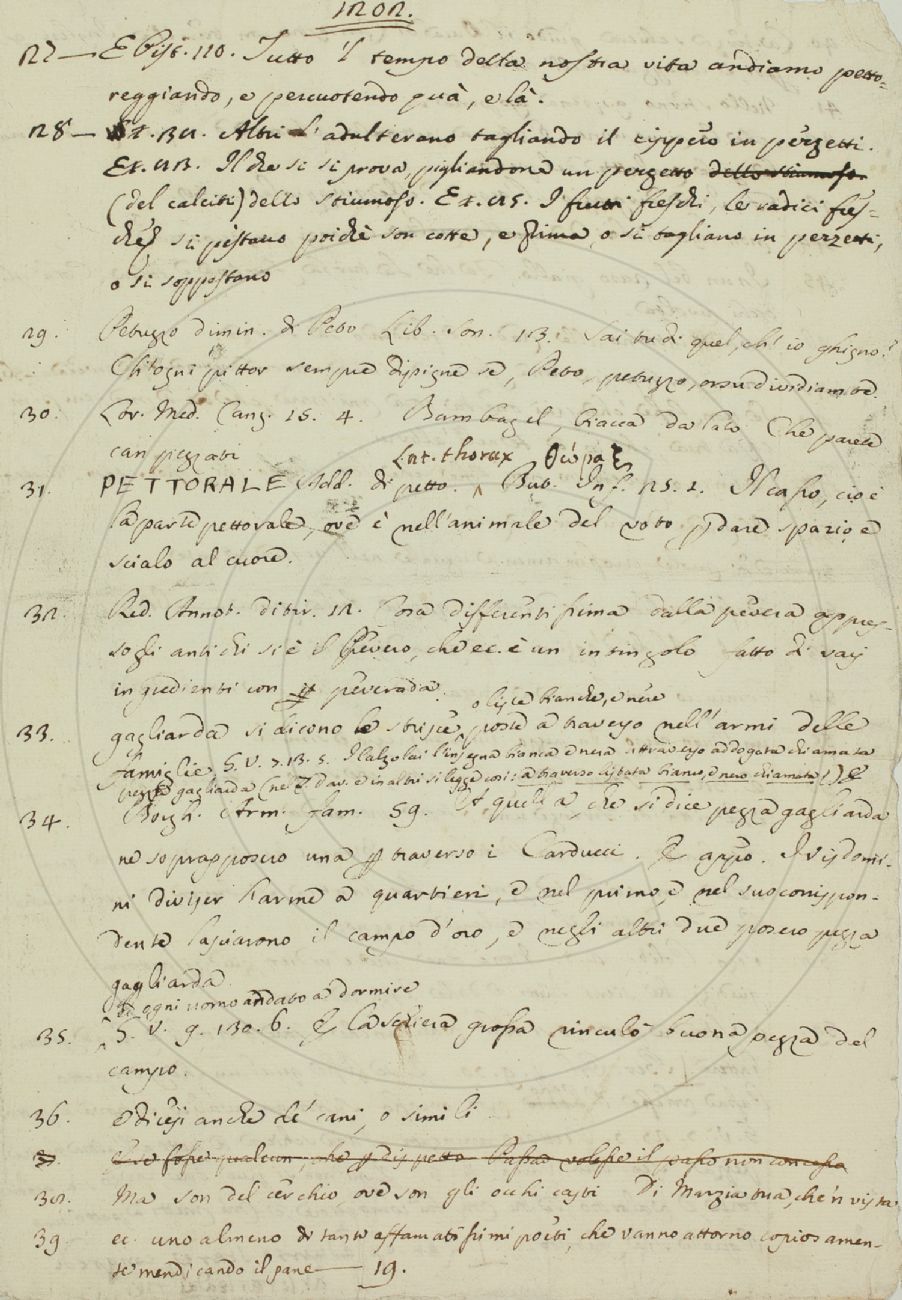 1202.
27 — E Pist. 110. Tutto 'l tempo della nostra vita andiamo petto-
reggiando, e percuotendo quà, e là.
28 — Altri l'adulterano tagliando il cippero in pezzetti.
Il che si si prova pigliandone un pezzetto dello stiumoso.
(del calciti) dello stiumoso. I frutti freschi, le radici fres-
che, si pestano poichè son cotte, e prima o si tagliano in pezzetti,
o si soppestano
29. Petruzzo dimin. di Petro Lib. Son. 13. Sai tu di quel, ch' io ghigno?
Ch'ogni pittor sempre dipigne sè, Petro, petruzzo, orsù dividiamcè.
30. Lor. Med. Canz. 15. 4. Bambagel, biacca da lato Che parete
can pezzati
Lat. thorax θώραξ
31. PETTORALE Add. di petto. But. Inf. 25. 2. Il casso, cioè
la parte pettorale, ove è nell'animale del voto p dare spazio, e
scialo al cuore.
32. Red. Annot. Ditir. 12. Cosa differentissima dalla pevera appres-
so gli antichi si è il Pevero, che ec. è un intingolo fatto di varj
ingredienti con peverada.
o lisce bianche, e nere
33. gagliarda si dicono le strisce poste a traverso nell'armi delle
famiglie G. V. 7. 13. 5. I calzolai l'insegna bianca e nera attraverso addogata chiamata
pezza gagliarda (nel T. Dav. e in altri si legge così: a traverso listata bianco, e nero chiamata) E
34. Borgh. Arm. Fam. 59. Di quella che si dice pezza gagliarda
ne soprapposero una p traverso i Carducci. E appo. I Visdomi-
ni diviser l'arme a quartieri, e nel primo, e nel suo corrispon-
dente lasciarono il campo d'oro, e negli altri due posero pezza
gagliarda
ed ogni uomo andato a dormire
35. G. V. 9. 130. 6. E la schiera grossa rinculò buona pezza del
campo.
36. e dicesi anche de' cani, o simili
E se fosse qualcun, che p dispetto Passar volesse il passo non concesso
38. Ma son del cerchio, ove son gli occhi casti Di Marzia tua, che 'n vista
39. ec. uno almeno di tanti affamatissimi poeti, che vanno attorno copiosamen-
te mendicando il pane — 19.